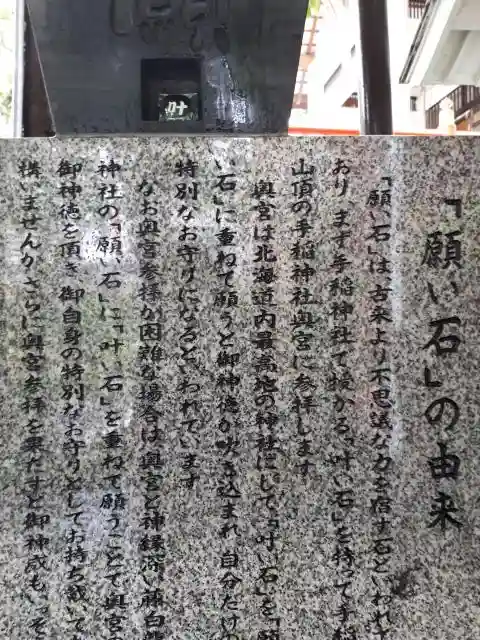 叶
「願い石」の由来
「願い石」は古来より不思議な力を宿す石といわれ
おり、まず手稲神社で授かる「叶い石」を持って手
山頂の手稲神社奥宮に参拝します
奥宮は北海道内最高地の神社にして「叶い石」を「願
い石」に重ねて願うと御神徳が吹き込まれ、自分だけの
特別なお守りになるといわれています
なお奥宮参拝が困難な場合は奥宮と神縁深い藤白
神社の「願い石」に「叶い石」を重ねて願うことで奥宮
御神徳を頂き御自身の特別なお守りとしてお持ち戴いて
構いませんがさらに奥宮参拝を果たすと御神威も、そ